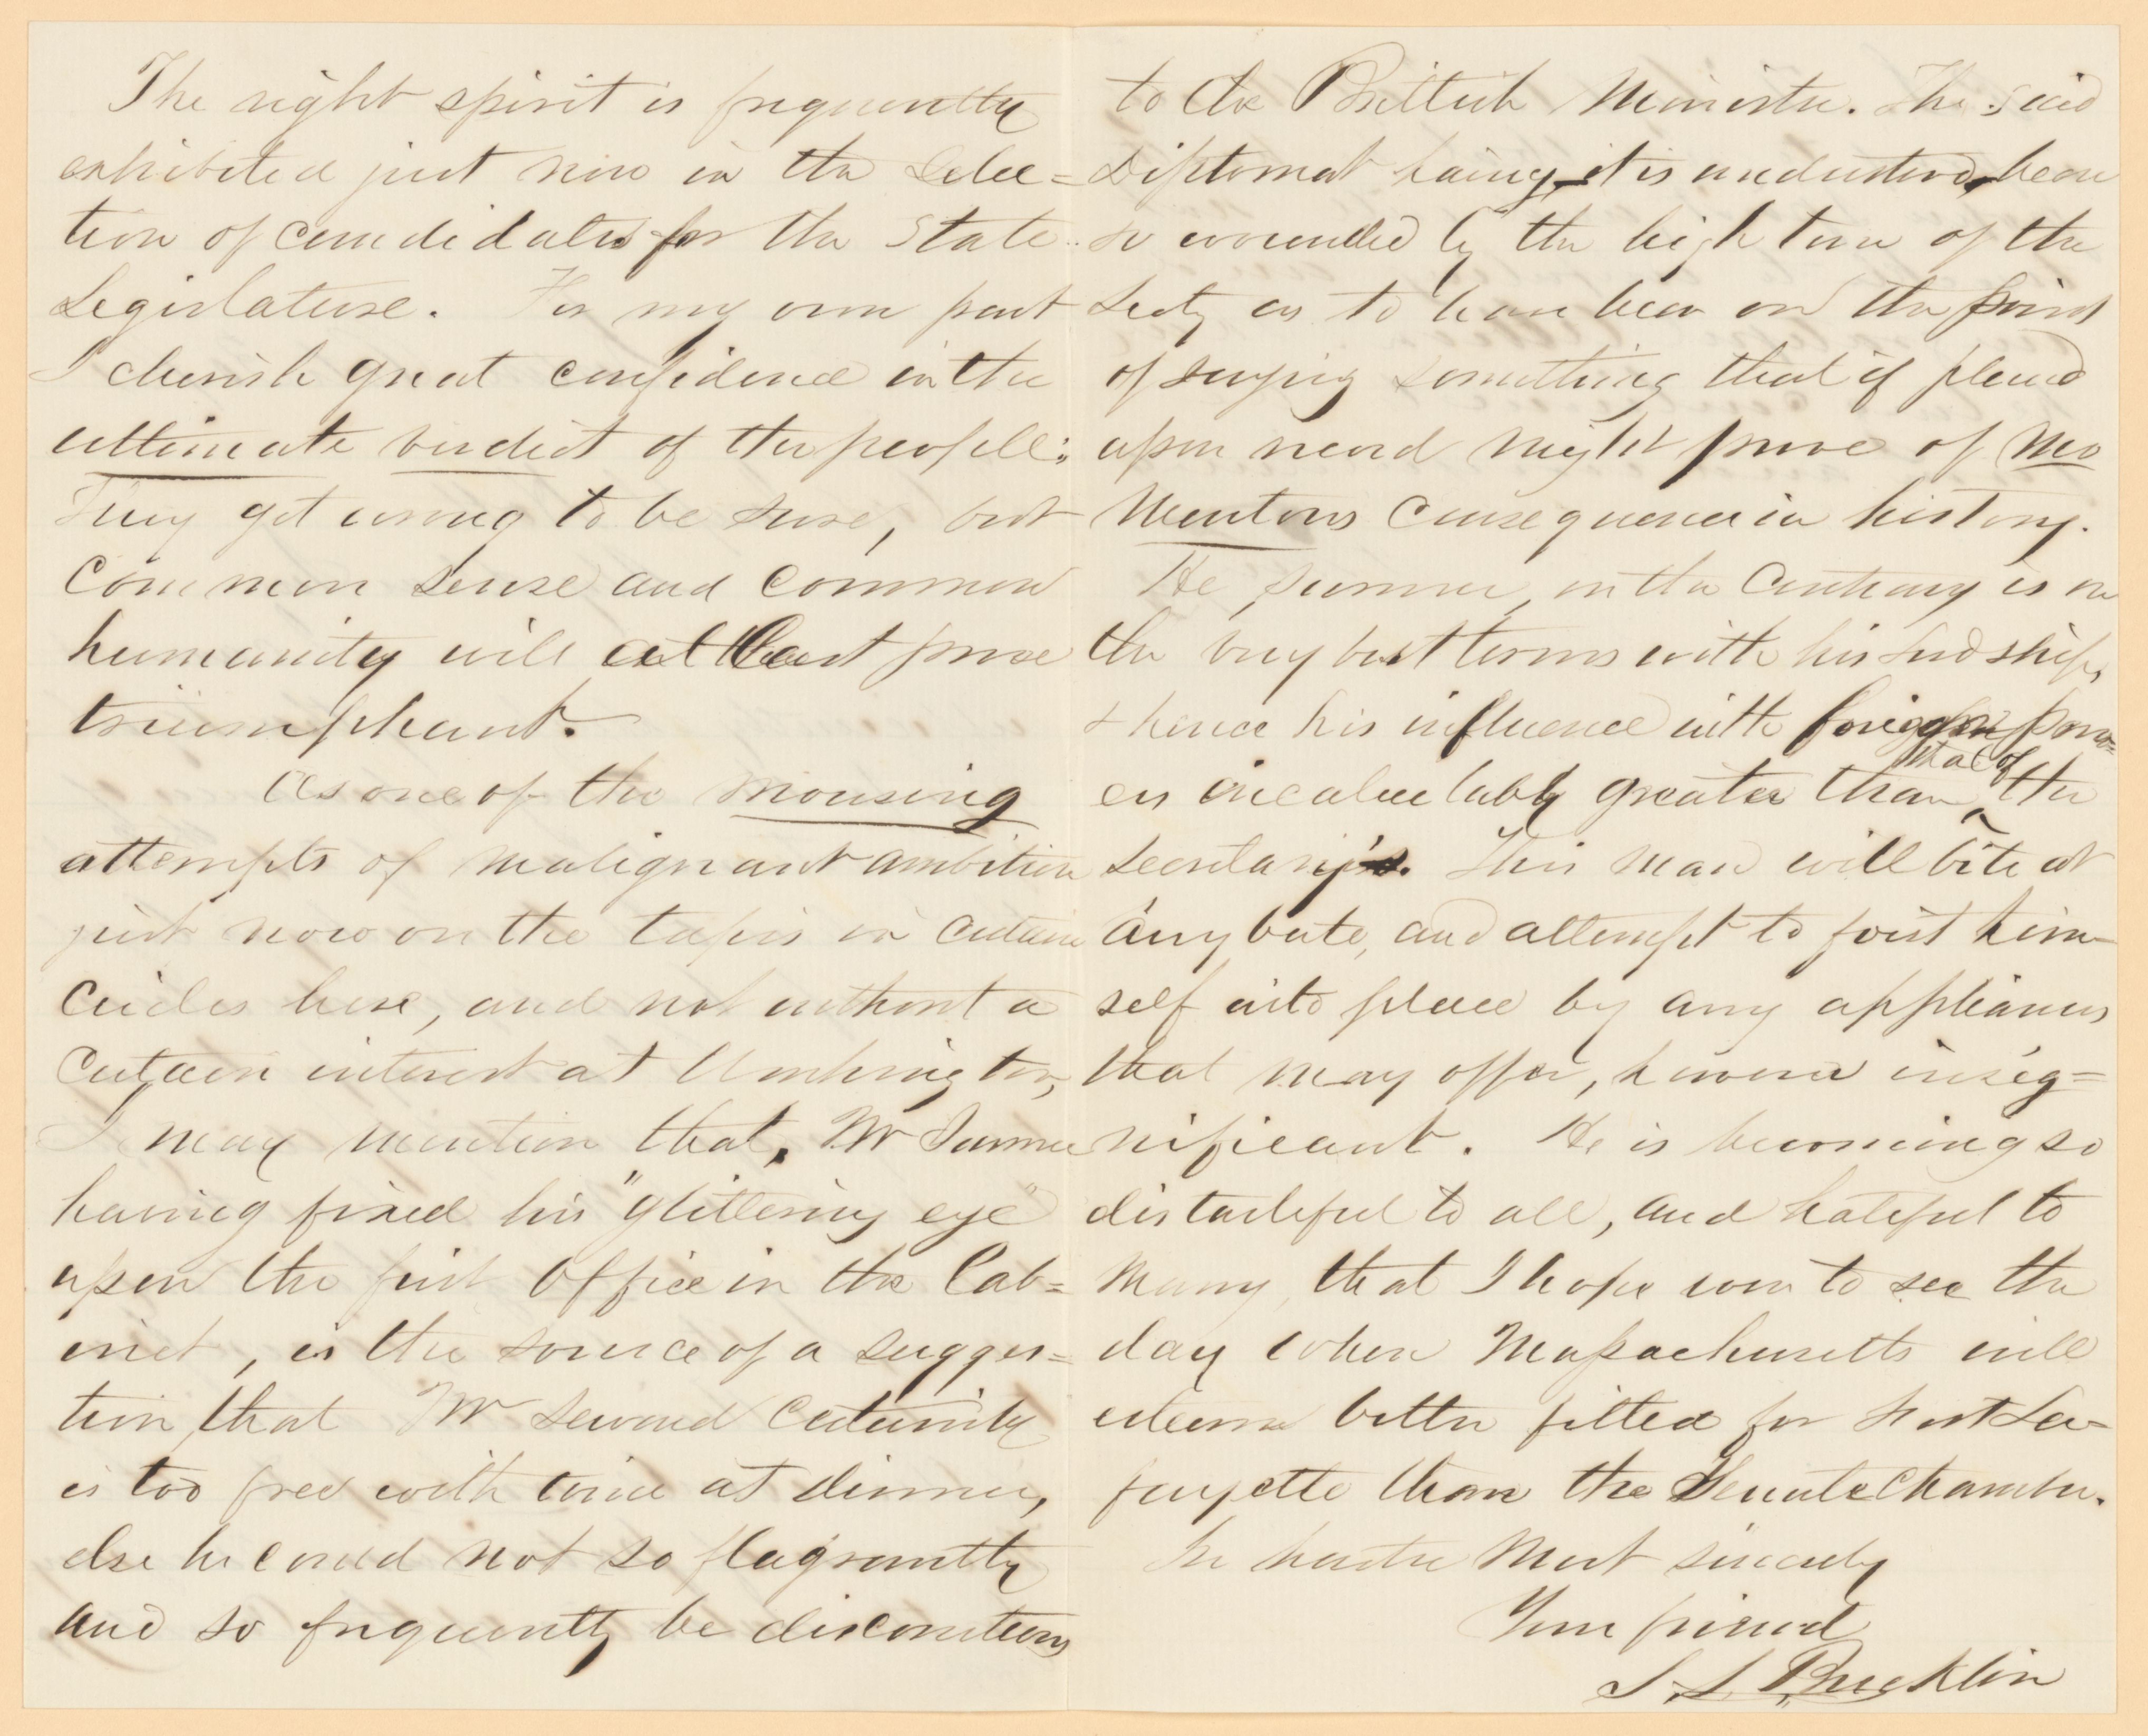 The right spirit is frequently
exhibited just now in the Selec=
tion of candidates for the State
Legislature. For my own part
I cherish great confidence in the
ultimate verdict of the people:
They get wrong to be sure, but
Common sense and common
humanity will at least prove
triumphant.
As one of the mousing
attempts of malignant ambition
just now on the tapis in certain
Circles here, and not without a
Certain interest at Washington,
I may mention that, Mr Sumner
having fixed his "glittering eye"
upon the first Office in the Cab=
inet, is the source of a sugges=
tion, that Mr Seward certainly
is too free with wine at dinner,
else he could not so flagrantly
and so frequently be discourteous
to the British Minister. The said
Diplomat having, it is understood, been
so wounded by the high tone of the
Secty as to have been on the point
of saying something that if placed
upon record might prove of mo
mentous Consequence in history.
He, Sumner, on the Contrary is on
the very best terms with his Lordship,
& hence his influence with foreign pow=
ers incalculably greater than that of the
Secretary's. This man will bite at
any bate, and attempt to foist him-
self into place by any appliances
that may offer, however insig=
nificant. He is becoming so
distasteful to all, and hateful to
Many, that I hope soon to see the
day when Massachusetts will
esteem better fitted for Fort La-
fayette than the Senate Chamber.
In haste Most sincerely
Your friend
S. S. Bucklin